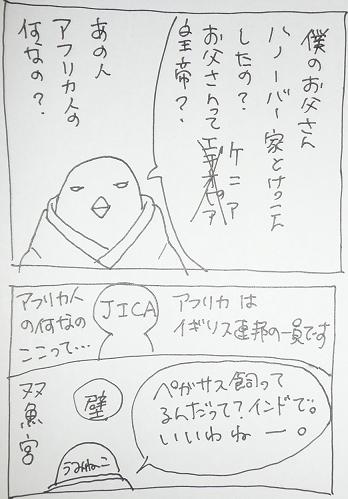 僕のお父さん
ハノーバー家とけっこん
したの?
お父さんって
ケニア
皇帝?
あの人
アフリカ人の
何なの?
アフリカ人
の何なの
ここって…
JICA
アフリカは
イギリス連邦の一員です
双魚宮
壁
うみねこ
ペガサス飼って
るんだって?インドで。
いいわねー。